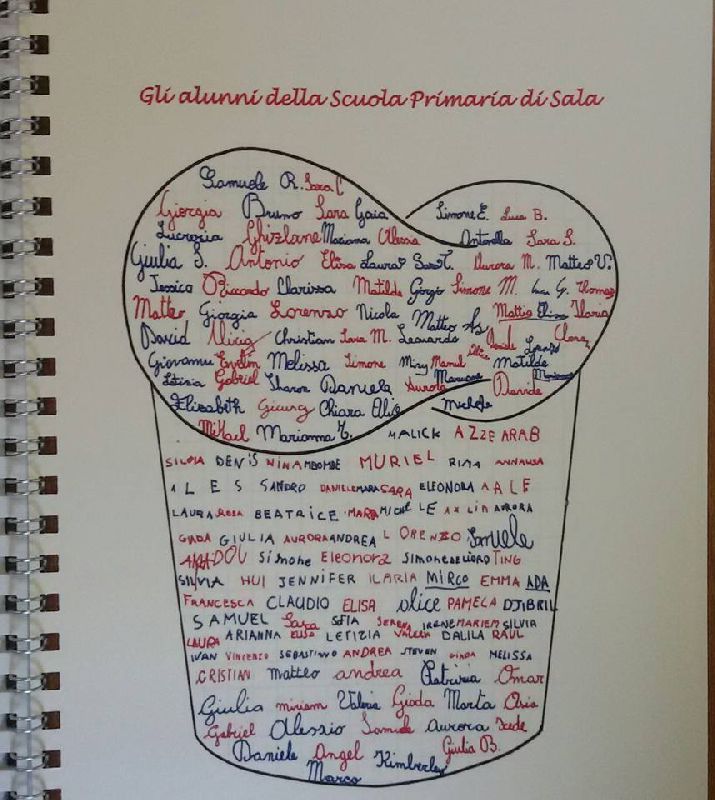 Gli alunni della Scuola Primaria di Sala
Samuele R. Sara C
Giorgia Bruno Sara Gaia Simone E. Luca B.
Lucrezia Ghizlane Marianna Alessia Antonella Sara S.
Giulia S. Antonio Elisa Laura Sara T. Aurora M. Matteo V.
Jessica Riccardo Clarissa Matilde Giorgio Simone M. Luca G. Thomas
Matteo Giorgia Lorenzo Nicola Matteo Mattia Elisa Ilaria
David Alicia Christian Sara M. Leonardo Davide Clara
Giovanni Evelin Melissa Simone Miry Manuel Matilde
Letizia Gabriel Sharon Daniela Aurora Marianna Davide
Elisabeth Giung Chiara Alice Michele
Mikael Marianna T. MALICK AZZE ARAB
SILVIA DENIS NINA MBOMBE MURIEL RIMA ANNALISA
ALES SANDRO DANIELE MARA SARA ELEONORA
LAURA ROSA BEATRICE MARA MICHELE AXLIN AURORA
GIADA GIULIA AURORA ANDREA LORENZO Samuele
AMADOU Simone Eleonora SIMONE TING
SILVIA HUI JENNIFER ILARIA MIRCO EMMA ADA
FRANCESCA CLAUDIO ELISA alice PAMELA DJIBRIL
SAMUEL Sara SOFIA SERENA IRENE MARIEM SILVIA
LAURA ARIANNA ELISA LETIZIA VALERIA DALILA RAUL
IVAN VINCENZO SEBASTIANO ANDREA STEVEN GIADA MELISSA
CRISTIAN Matteo andrea Patrizia Omar
Giulia miriam Valeria Giada Marta
Gabriel Alessio Samuele Aurora
Daniele Angel Kimberley Giulia B.
Marco